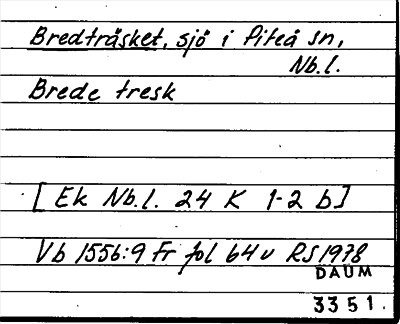 Bredträsket, sjö i Piteå sn,
Nb.l.
Brede tresk
[Ek Nb.l. 24 K 1-2 b]
Vb 1556:9 Fr fol 64v RS 1978
DAUM
3351.